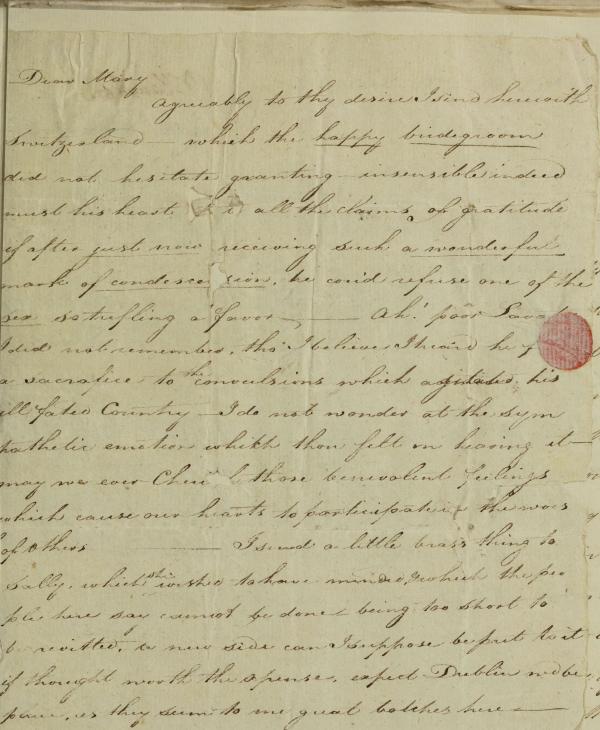 Dear Mary
agreeably to thy desire I send herewith
Switzerland — which the happy bridegroom
did not hesitate granting — insensible indeed
must his heart to all the claims of gratitude
if after just now receiving such a wonderful
mark of condescension, he could refuse one of the
sex so trifling a favor —— Ah! poor
I did not remember, tho' I believe I heard he
a sacrafice to the convulsions which agitated his
ill fated Country — I do not wonder at the sym
pathetic emotion which thou felt on hearing it —
may we ever Cherish those benevolent feelings
which cause our hearts to participate in the woes
of others —— I send a little brass thing to
Sally, which she wished to have minded, & which the peo
ple here say cannot be done being too short to
be rivitted, a new side can I suppose be put to it
if thought worth the expense, expect Dublin wd be
place, as they seem to me great botches here —